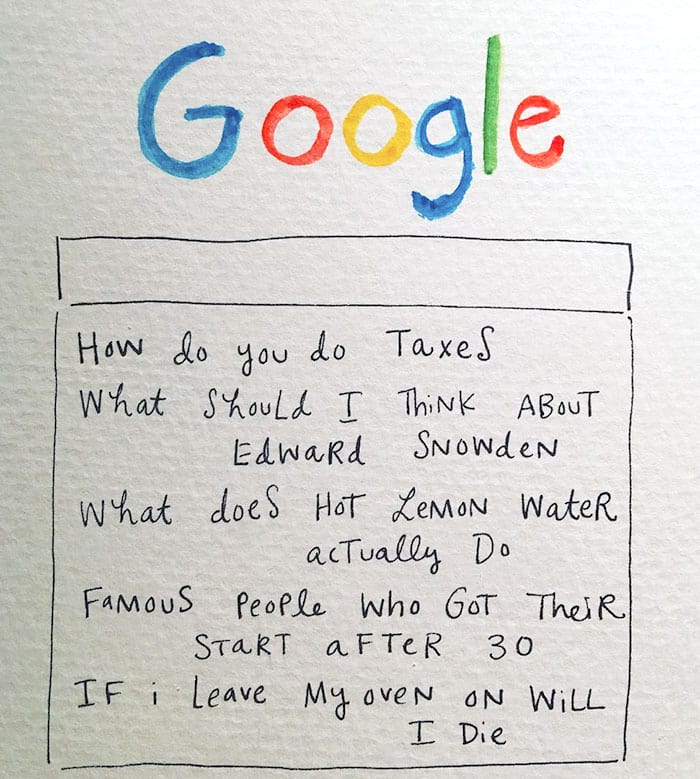 Google
How do you do Taxes
What should I THiNK ABOUT
EdwaRd SNowdeN
What does HoT LeMoN WateR
acTually Do
FaMouS PeoPle Who GoT TheiR
STaRT aFTeR 30
IF i Leave My oveN oN WiLL
I Die